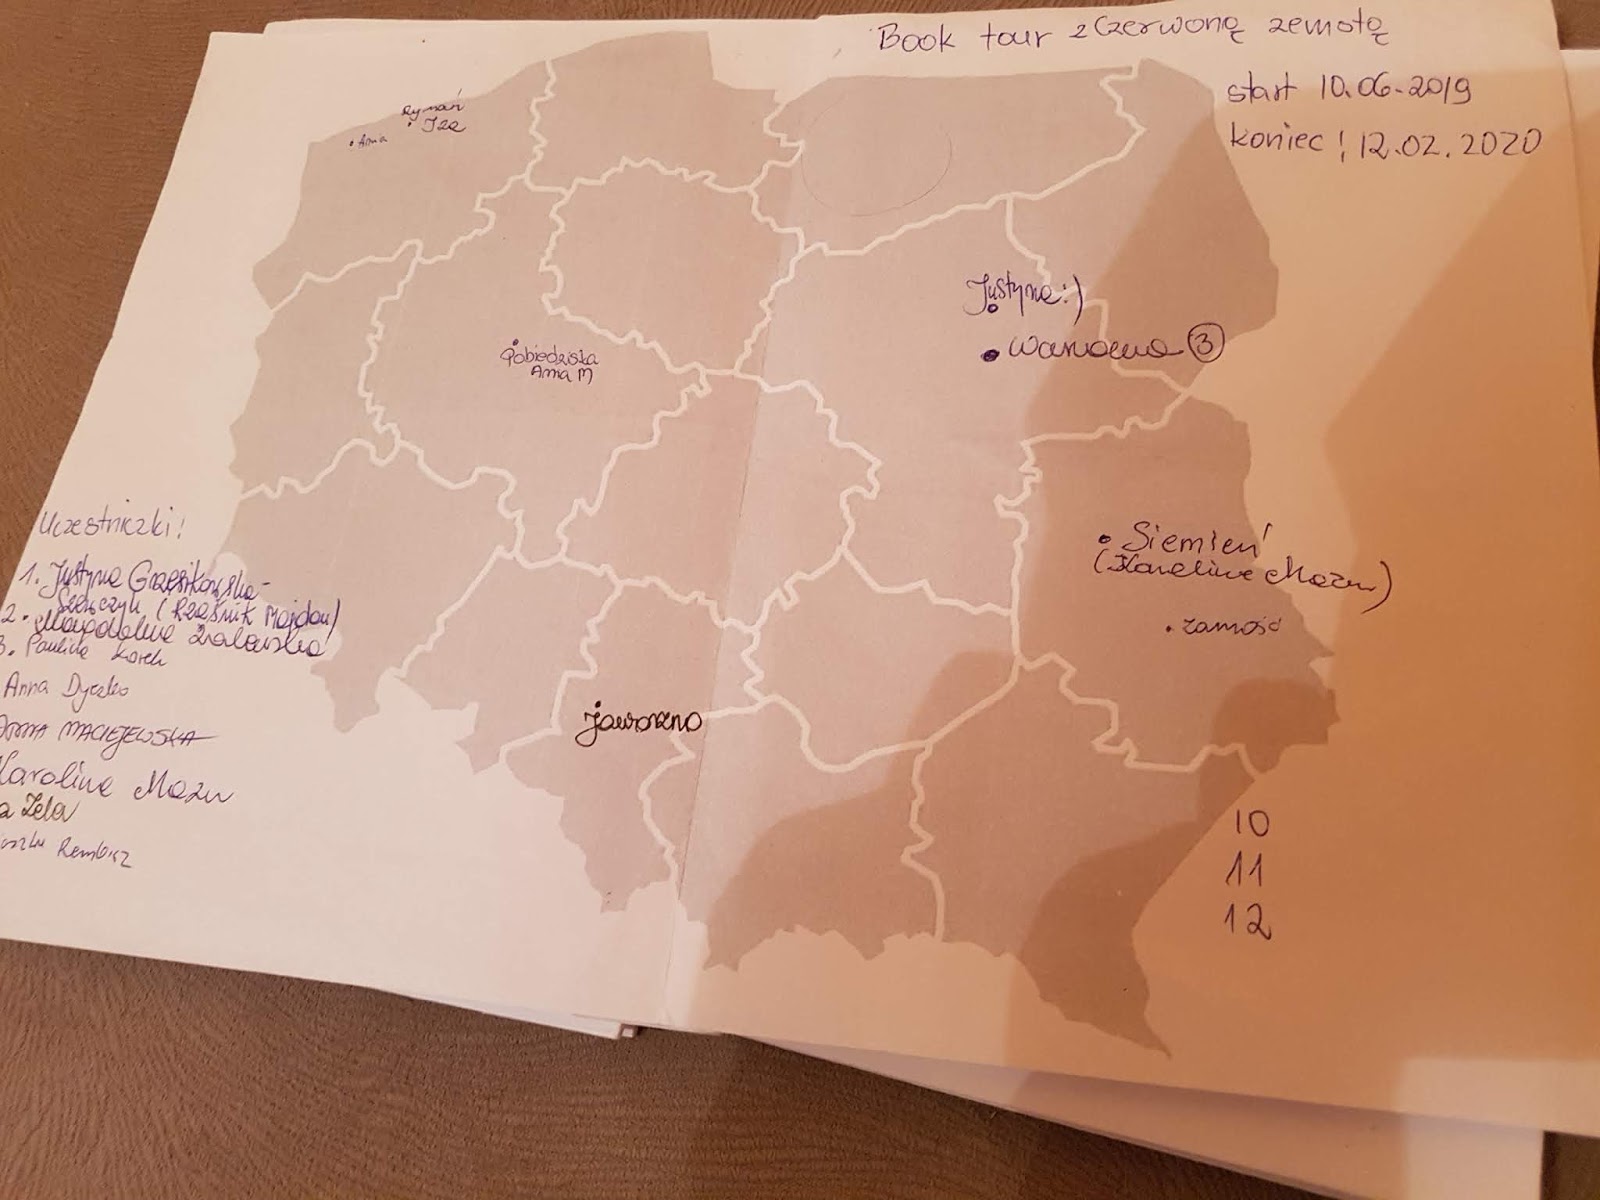 Book tour z Czerwoną zemstą
start 10.06.2019
koniec! 12.02.2020
Rymań
Iza
Ania
Justyna:)
Warszawa 3
Pobiedziska
Ania M
Siemień
(Karolina Mazur)
Zamość
Jaworzno
Uczestniczki!
1. Justyna Grzęsikowska-
Szewczyk (Rząśnik Majdan)
2. Magdalena Żralowska
3. Paulina Korek
Anna Dyczko
MACIEJEWSKA
Karolina Mazur
a Zela
Rembisz
10
11
12